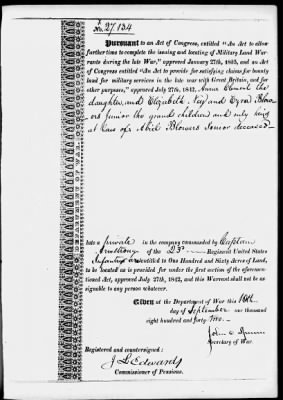 No. 27,134
Pursuant to an Act of Congress, entitled "An Act to allow
further time to complete the issuing and locating of Military Land War-
rants during the late War," approved January 27th, 1835, and an Act
of Congress entitled "An Act to provide for satisfying claims for bounty
land for military services in the late war with Great Britain, and for
other purposes," approved July 27th, 1842, Anna Clement the
daughter, and Elizabeth and Blow-
ers Junior the grand children and only heirs
at Law of Abiel Blowers Senior deceased
late a private in the company commanded by Captain
Armstrong of the 23d Regiment United States
Infantry are entitled to One Hundred and Sixty Acres of Land,
to be located as is provided for under the first section of the aforemen-
tioned Act, approved July 27th, 1842, and this Warrant shall not be as-
signable to any person whatever.
Given at the Department of War this 10th
day of September one thousand
eight hundred and forty-two.
John C Spencer
Secretary of War.
Registered and countersigned:
J L Edwards
Commissioner of Pensions.
DEPARTMENT OF WAR.